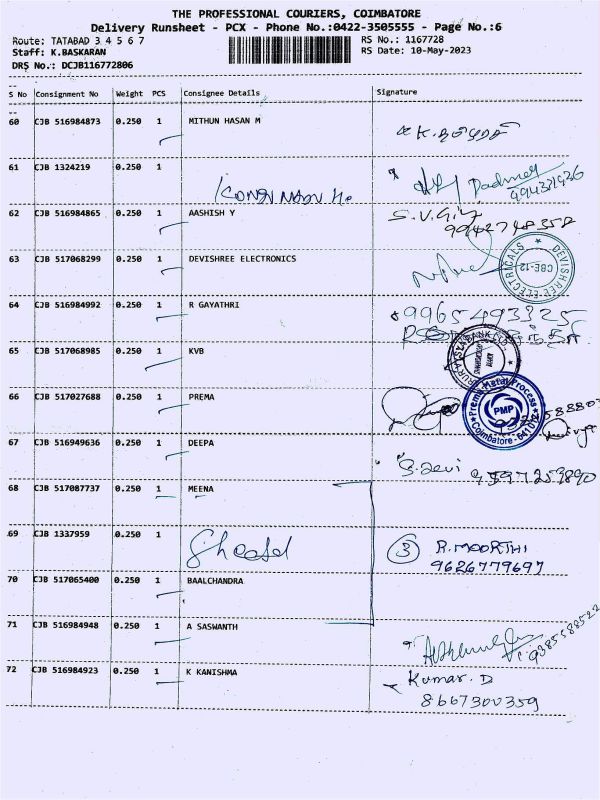 THE PROFESSIONAL COURIERS, COIMBATORE
Delivery Runsheet - PCX - Phone No.:0422-3505555 - Page No.:6
Route: TATABAD 3 4 5 6 7 RS No.: 1167728
Staff: K.BASKARAN RS Date: 10-May-2023
DRS No.: DCJB116772806
S No Consignment No Weight PCS Consignee Details Signature
60 CJB 516984873 0.250 1 MITHUN HASAN M
61 CJB 1324219 0.250 1
62 CJB 516984865 0.250 1 AASHISH Y S.V.Giy
9942748358
63 CJB 517068299 0.250 1 DEVISHREE ELECTRONICS
DEVISHREE ELECTRICALS
CBE-12
64 CJB 516984992 0.250 1 R GAYATHRI 9965493325
65 CJB 517068985 0.250 1 KVB
66 CJB 517027688 0.250 1 PREMA
Prema Metal Process
PMP
Coimbatore - 641 012
67 CJB 516949636 0.250 1 DEEPA S. Devi 9597253890
68 CJB 517087737 0.250 1 MEENA
69 CJB 1337959 0.250 1 3 R. MOORTHI
9626779697
70 CJB 517065400 0.250 1 BAALCHANDRA
71 CJB 516984948 0.250 1 A SASWANTH 9385588522
72 CJB 516984923 0.250 1 K KANISHMA Kumar. D
8667300359